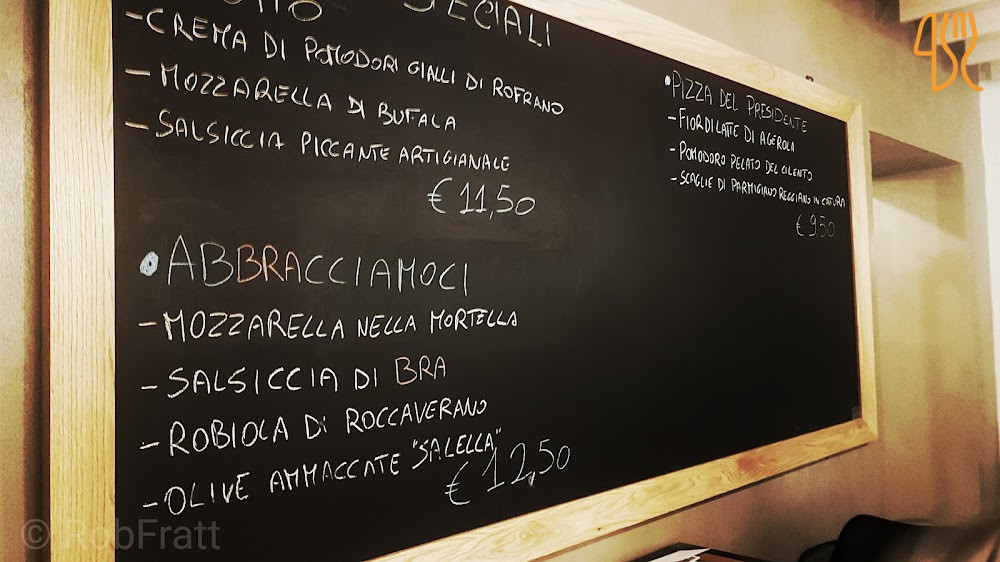 SPECIALI
- CREMA DI POMODORI GIALLI DI ROFRANO
- MOZZARELLA DI BUFALA
- SALSICCIA PICCANTE ARTIGIANALE
€ 11,50
• ABBRACCIAMOCI
- MOZZARELLA NELLA MORTELLA
- SALSICCIA DI BRA
- ROBIOLA DI ROCCAVERANO
- OLIVE AMMACCATE "SALELLA"
€ 12,50
• PIZZA DEL PRESIDENTE
- FIORDILATTE DI AGEROLA
- POMODORO PELATO DEL CILENTO
- SCAGLIE DI PARMIGIANO REGGIANO IN COTURA
€ 9,50
© RobFratt